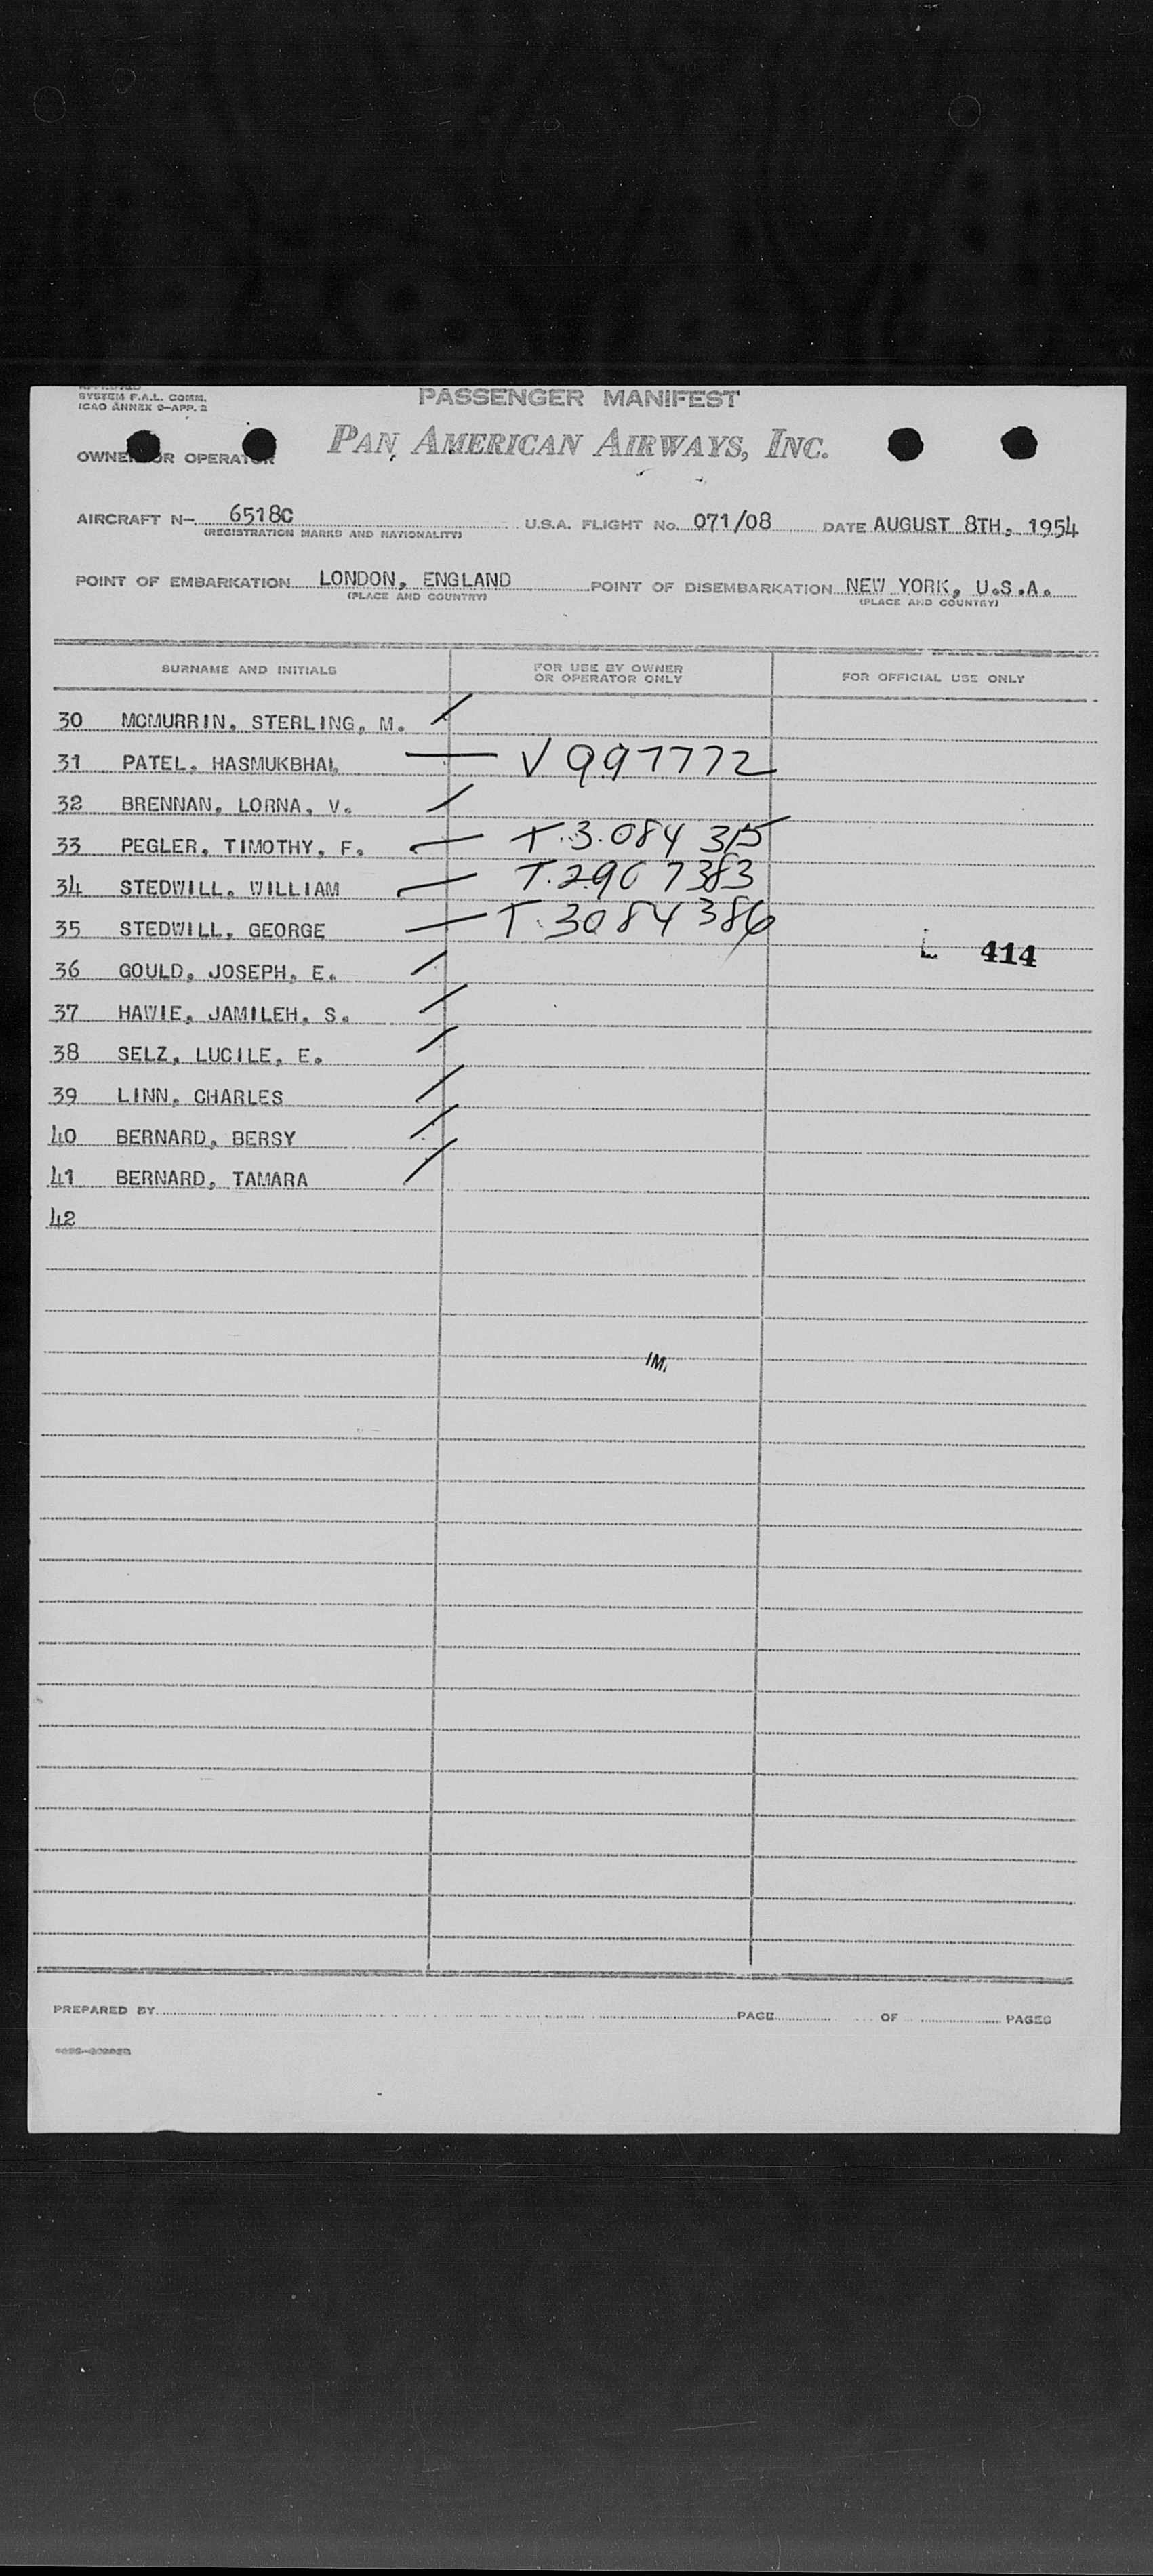 SYSTEM F.A.L. COMM.
ICAO ANNEX 9-APP. 2
PASSENGER MANIFEST
OWNER OR OPERATOR
PAN AMERICAN AIRWAYS, INC.
AIRCRAFT N- 6518C U.S.A. FLIGHT No. 071/08 DATE AUGUST 8TH, 1954
(REGISTRATION MARKS AND NATIONALITY)
POINT OF EMBARKATION LONDON, ENGLAND POINT OF DISEMBARKATION NEW YORK, U.S.A.
(PLACE AND COUNTRY) (PLACE AND COUNTRY)
SURNAME AND INITIALS FOR USE BY OWNER OR OPERATOR ONLY FOR OFFICIAL USE ONLY
30 MCMURRIN, STERLING, M.
31 PATEL, HASMUKBHAI V997772
32 BRENNAN, LORNA, V.
33 PEGLER, TIMOTHY, F. T.3.084 315
34 STEDWILL, WILLIAM T.2907383
35 STEDWILL, GEORGE T.3084386
L 414
36 GOULD, JOSEPH, E.
37 HAWIE, JAMILEH, S.
38 SELZ, LUCILE, E.
39 LINN, CHARLES
40 BERNARD, BERSY
41 BERNARD, TAMARA
42
IM,
PREPARED BY PAGE OF PAGES